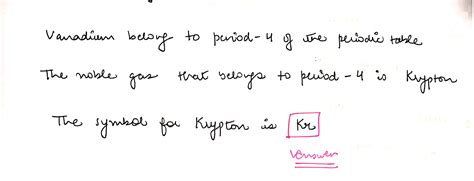 Vanadium belong to period-4 of the periodic table
The noble gas that belongs to period-4 is Krypton
The symbol for Krypton is Kr